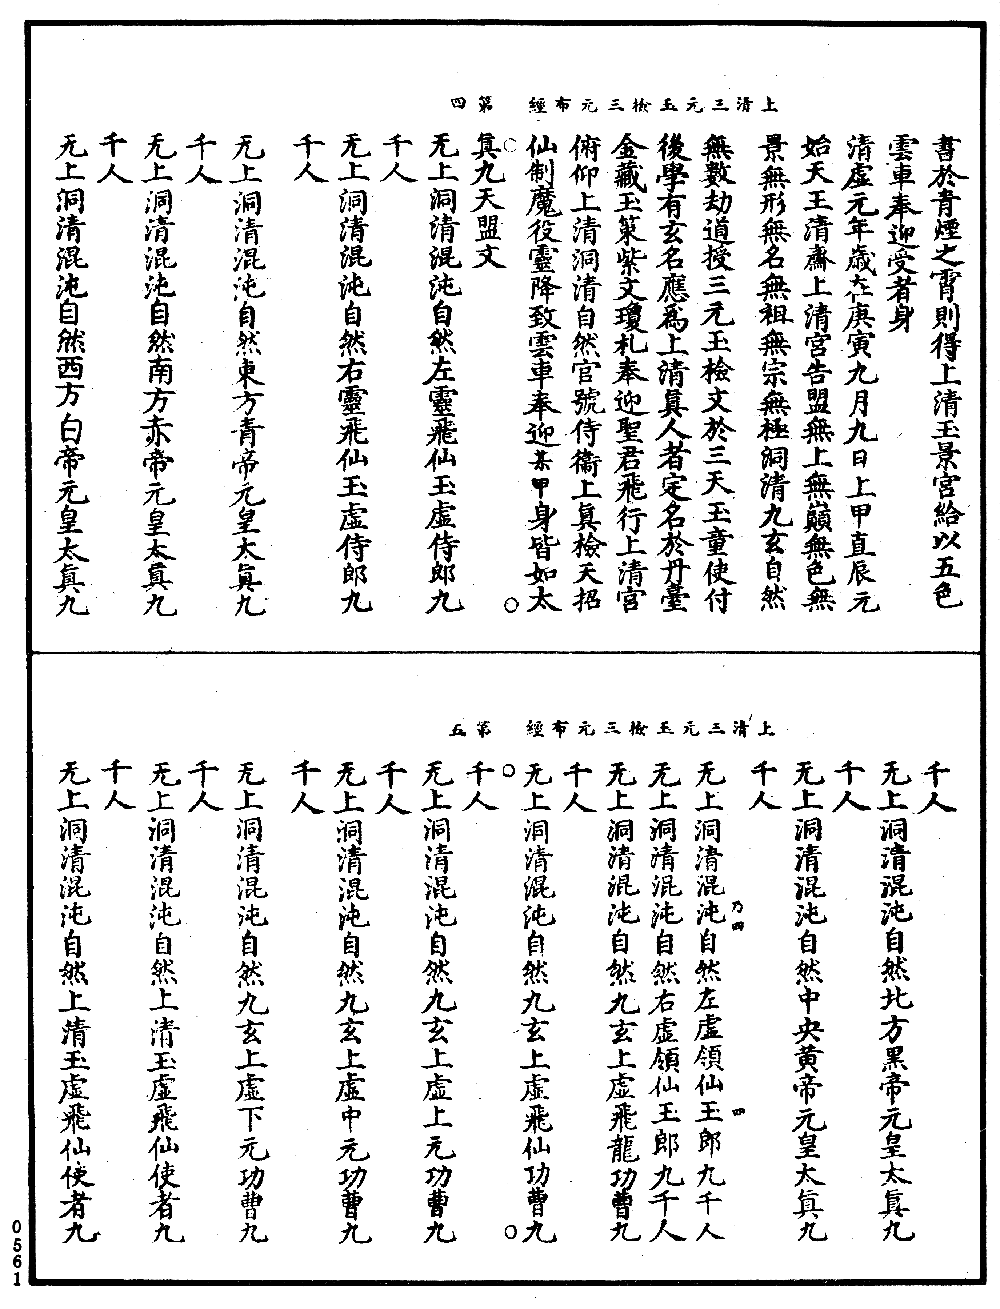 上清三元玉檢三元布經　第四
書於青煙之霄則得上清玉景宮給以五色
雲車奉迎受者身
清虛元年歲在庚寅九月九日上甲直辰元
始天王清齋上清宮告盟無上無巔無色無
景無形無名無祖無宗無極洞清九玄自然
無數劫道授三元玉檢文於三天玉童使付
後學有玄名應為上清真人者定名於丹臺
金藏玉策紫文瓊札奉迎聖君飛行上清宮
俯仰上清洞清自然官號侍衞上真檢天招
仙制魔役靈降致雲車奉迎某甲身皆如太
真九天盟文
无上洞清混沌自然左靈飛仙玉虛侍郎九
千人
无上洞清混沌自然右靈飛仙玉虛侍郎九
千人
无上洞清混沌自然東方青帝元皇太真九
千人
无上洞清混沌自然南方赤帝元皇太真九
千人
无上洞清混沌自然西方白帝元皇太真九
上清三元玉檢三元布經　第五
千人
无上洞清混沌自然北方黑帝元皇太真九
千人
无上洞清混沌自然中央黃帝元皇太真九
千人
乃四　四
无上洞清混沌自然左虛領仙玉郎九千人
无上洞清混沌自然右虛領仙玉郎九千人
无上洞清混沌自然九玄上虛飛龍功曹九
千人
无上洞清混沌自然九玄上虛飛仙功曹九
千人
无上洞清混沌自然九玄上虛上元功曹九
千人
无上洞清混沌自然九玄上虛中元功曹九
千人
无上洞清混沌自然九玄上虛下元功曹九
千人
无上洞清混沌自然上清玉虛飛仙使者九
千人
无上洞清混沌自然上清玉虛飛仙使者九
0561